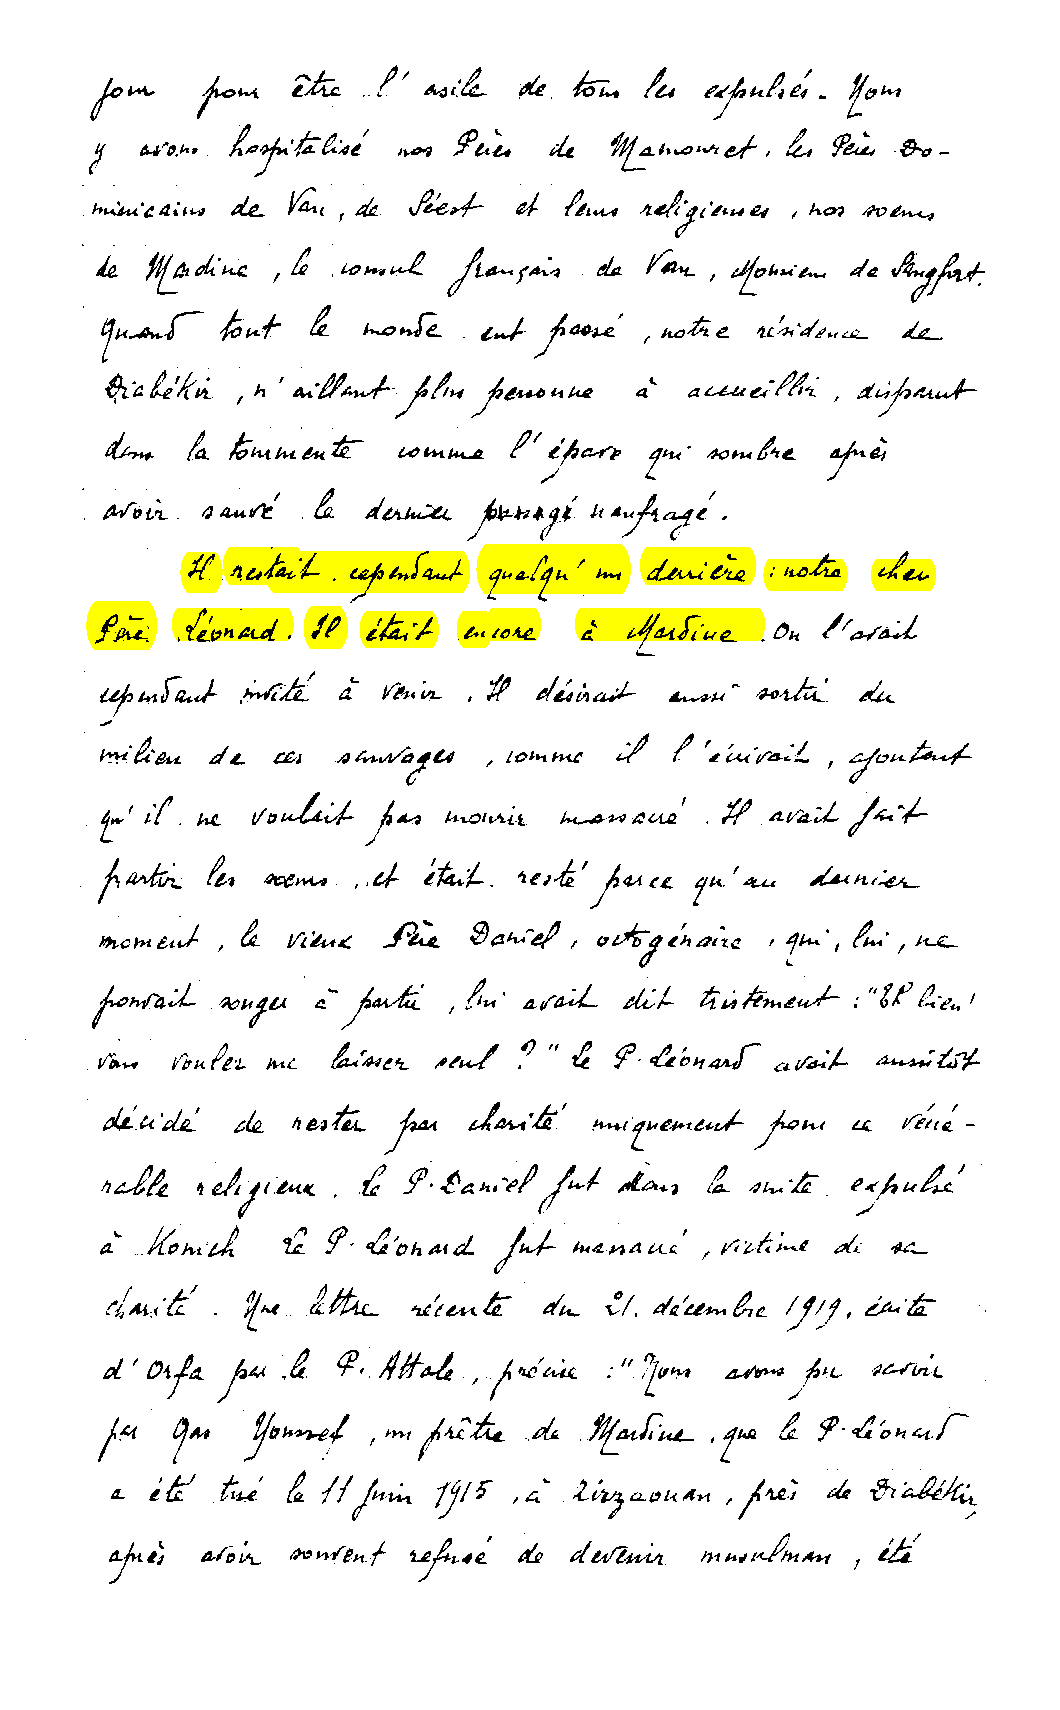 jour pour être l'asile de tous les expulsés. Nous
y avons hospitalisé nos Pères de Mamouret, les Pères Do-
minicains de Van, de Séert et leurs religieuses, nos soeurs
de Mardine, le consul français de Van, Monsieur de Sangfort.
Quand tout le monde eut passé, notre résidence de
Diabékir, n'aillant plus personne à accueillir, disparut
dans la tourmente comme l'épave qui sombre après
avoir sauvé le dernier naufragé.
Il restait cependant quelqu'un derrière : notre cher
Père Léonard. Il était encore à Mardine. On l'avait
cependant invité à venir. Il désirait aussi sortir du
milieu de ces sauvages, comme il l'écrivait, ajoutant
qu'il ne voulait pas mourir massacré. Il avait fait
partir les soeurs, et était resté parce qu'au dernier
moment, le vieux Père Daniel, octogénaire, qui, lui, ne
pouvait songer à partir, lui avait dit tristement : "Eh bien!
vous voulez me laisser seul ?" Le P. Léonard avait aussitôt
décidé de rester par charité uniquement pour ce véné-
rable religieux. Le P. Daniel fut dans la suite expulsé
à Konieh Le P. Léonard fut massacré, victime de sa
charité. Une lettre récente du 21. décembre 1919, écrite
d'Orfa par le P. Attale, précise : "Nous avons pu savoir
par Qas Youssef, un prêtre de Mardine, que le P. Léonard
a été tué le 11 Juin 1915, à Zirzaouan, près de Diabékir,
après avoir souvent refusé de devenir musulman, été